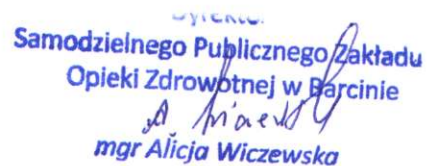 Samodzielnego Publicznego Zakładu
Opieki Zdrowotnej w Barcinie
mgr Alicja Wiczewska